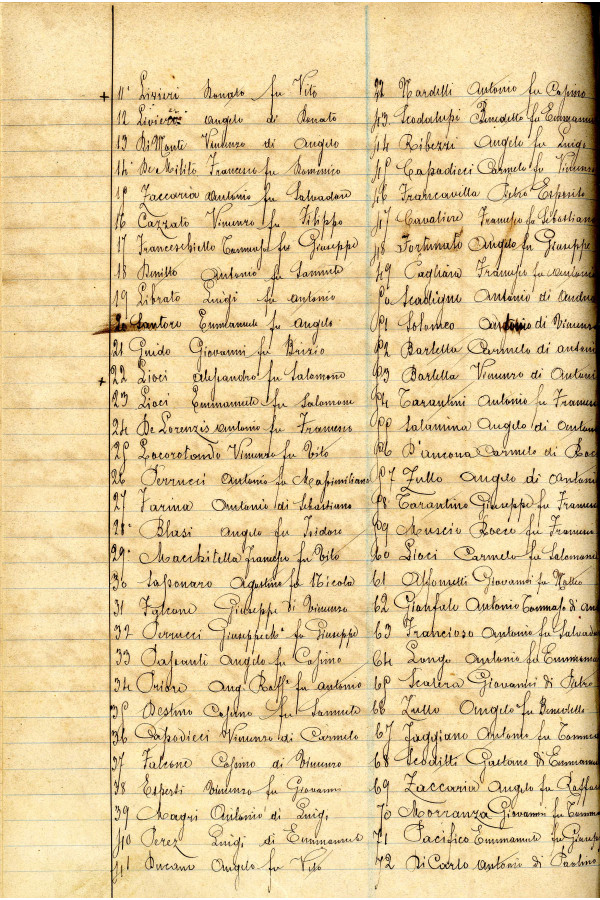 + 11 Livieri Donato fu Vito
12 Livieri Angelo di Donato
13 Di Monte Vincenzo di Angelo
14 De Milito Francesco fu Domenico
15 Zaccaria Antonio fu Salvadore
16 Cazzato Vincenzo fu Filippo
17 Franceschiello Tommaso fu Giuseppe
18 Antonio fu Samuele
19 Librato Luigi fu Antonio
20 Santoro Emmanuele fu Angelo
21 Guido Giovanni fu Brizio
+ 22 Lioci Alesandro fu Salomone
23 Lioci Emmanuele fu Salomone
24 De Lorenzis Antonio fu Francesco
25 Locorotondo Vincenzo fu Vito
26 Perrucci Antonio fu Massimiliano
27 Farina Antonio di Sebastiano
28 Blasi Angelo fu Isidoro
29 Macchitella Francesco fu Vito
30 Saponaro Agostino fu Nicola
31 Falcone Giuseppe di Vincenzo
32 Perrucci fu Giuseppe
33 Pasanti Angelo fu Cosimo
34 Ang. Raffe fu Antonio
35 Destino Cosimo fu Samuele
36 Capodieci Vincenzo di Carmelo
37 Falcone Cosimo di Vincenzo
38 Esperti Vincenzo fu Giovanni
39 Magri Antonio di Luigi
40 Perez Luigi di Emmanuele
41 Ducano Angelo fu Vito
Nardelli Antonio fu Cosimo
43 Scodalupi Benedetto fu
44 Ribezzi Angelo fu Luigi
45 Capodieci Carmelo fu Vincenzo
46 Francavilla Pietro Esposito
47 Cavaliere Francesco fu Sebastiano
48 Fortunato Angelo fu Giuseppe
49 Cagliara Francesco fu
50 Scadigno Antonio di
51 Solomeo Antonio di Vincenzo
52 Barletta Carmelo di Antonio
53 Barletta Vincenzo di
54 Tarantini Antonio fu
55 Salamina Angelo di
56 D'Ancona Carmelo di
57 Zullo Angelo di Antonio
58 Tarantino Giuseppe fu
59 Muscio Rocco fu
60 Lioci Carmelo fu Salomone
61 Alfonselli Giovanni fu Matteo
62 Gianfalo Antonio Tommaso di
63 Francioso Antonio fu
64 Longo Antonio fu
65 Scalera Giovanni di Pietro
66 Zullo Angelo fu Benedetto
67 Faggiano Antonio fu
68 Scoditti Gaetano di
69 Zaccaria Angelo fu
70 Morranza Giovanni fu
71 Pacifico Emmanuele fu
72 Di Carlo Antonio di Paolino